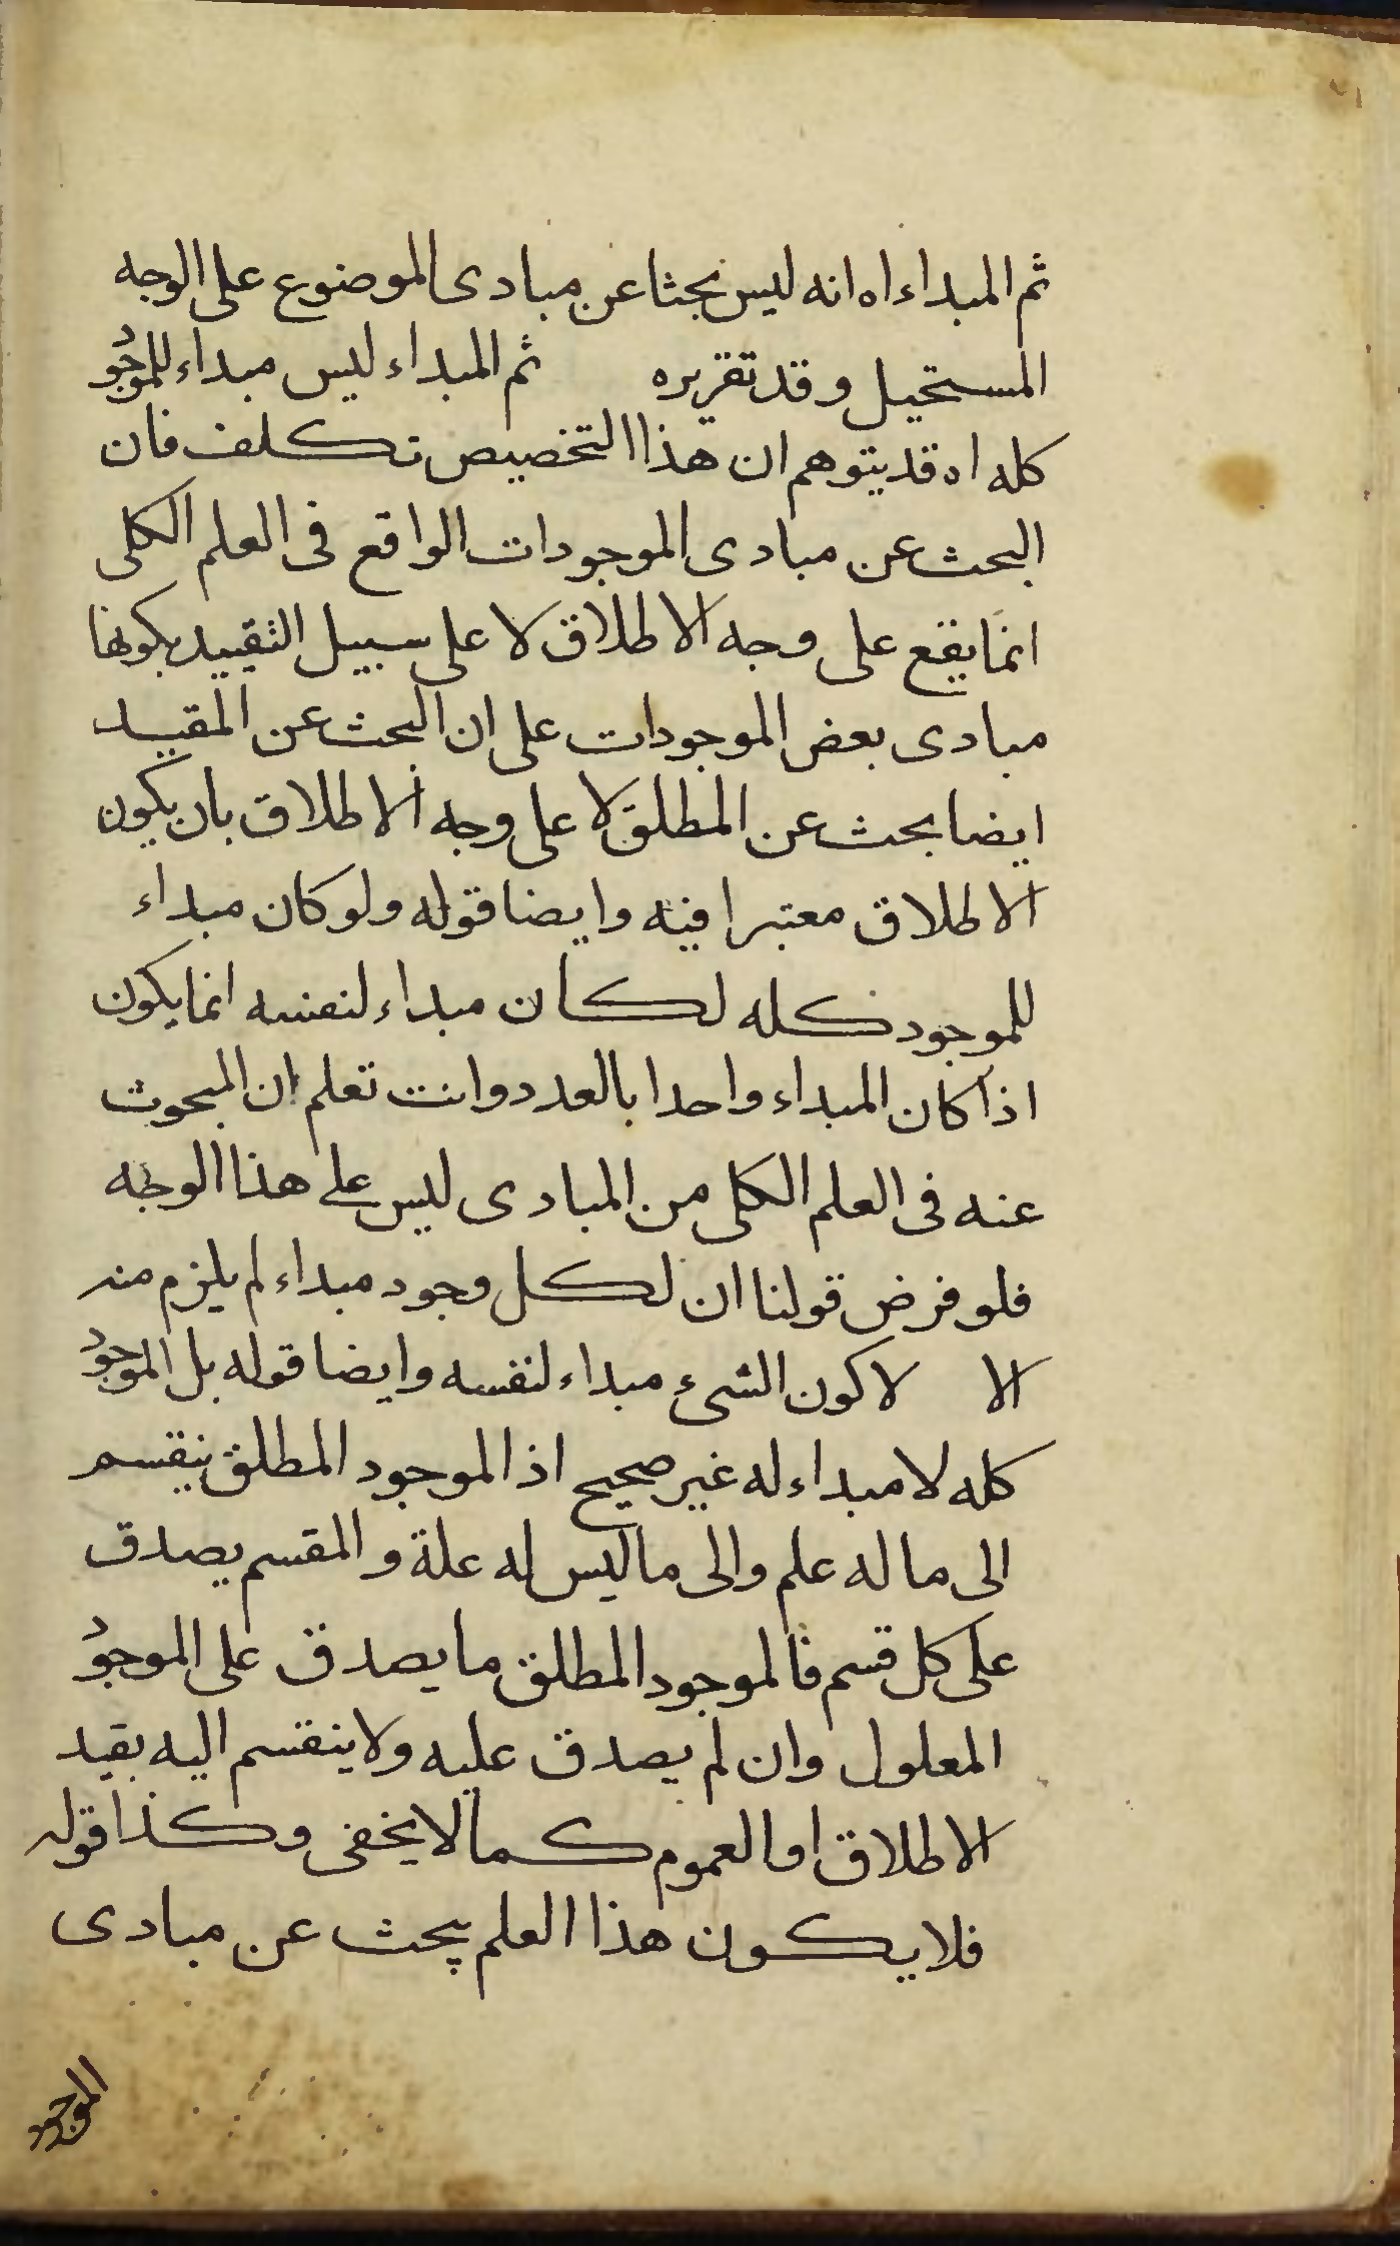 ثم المبداء اه انه ليس بحثا عن مبادى الموضوع على الوجه
المستحيل و قد تقريره ثم المبداء ليس مبداء للموجود
كله اه قد يتوهم ان هذا التخصيص تكلف فان
البحث عن مبادى الموجودات الواقع فى العلم الكلى
انما يقع على وجه الاطلاق لا على سبيل التقييد بكونها
مبادى بعض الموجودات على ان البحث عن المقيد
ايضا بحث عن المطلق لا على وجه الاطلاق بان يكون
الاطلاق معتبرا فيه وايضا قوله ولو كان مبداء
للموجود كله لكان مبداء لنفسه انما يكون
اذا كان المبداء واحدا بالعدد وانت تعلم ان المبحوث
عنه فى العلم الكلى من المبادى ليس على هذا الوجه
فلو فرض قولنا ان لكل وجود مبداء لم يلزم منه
الا لا كون الشىء مبداء لنفسه وايضا قوله بل الموجود
كله لا مبداء له غير صحيح اذ الموجود المطلق ينقسم
الى ما له علم والى ما ليس له علة و المقسم يصدق
على كل قسم فالموجود المطلق ما يصدق على الموجود
المعلول وان لم يصدق عليه ولا ينقسم اليه بقيد
الاطلاق او العموم كما لا يخفى وكذا قوله
فلا يكون هذا العلم يبحث عن مبادى
الموجود